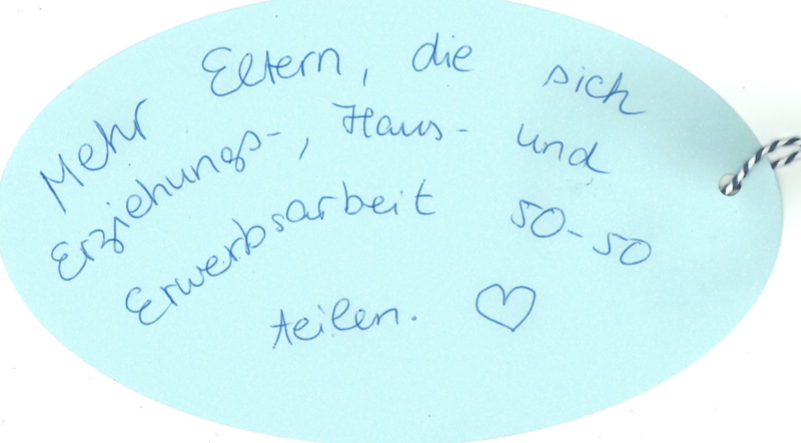 Mehr Eltern, die sich
Erziehungs-, Haus- und
Erwerbsarbeit 50-50
teilen. ♡